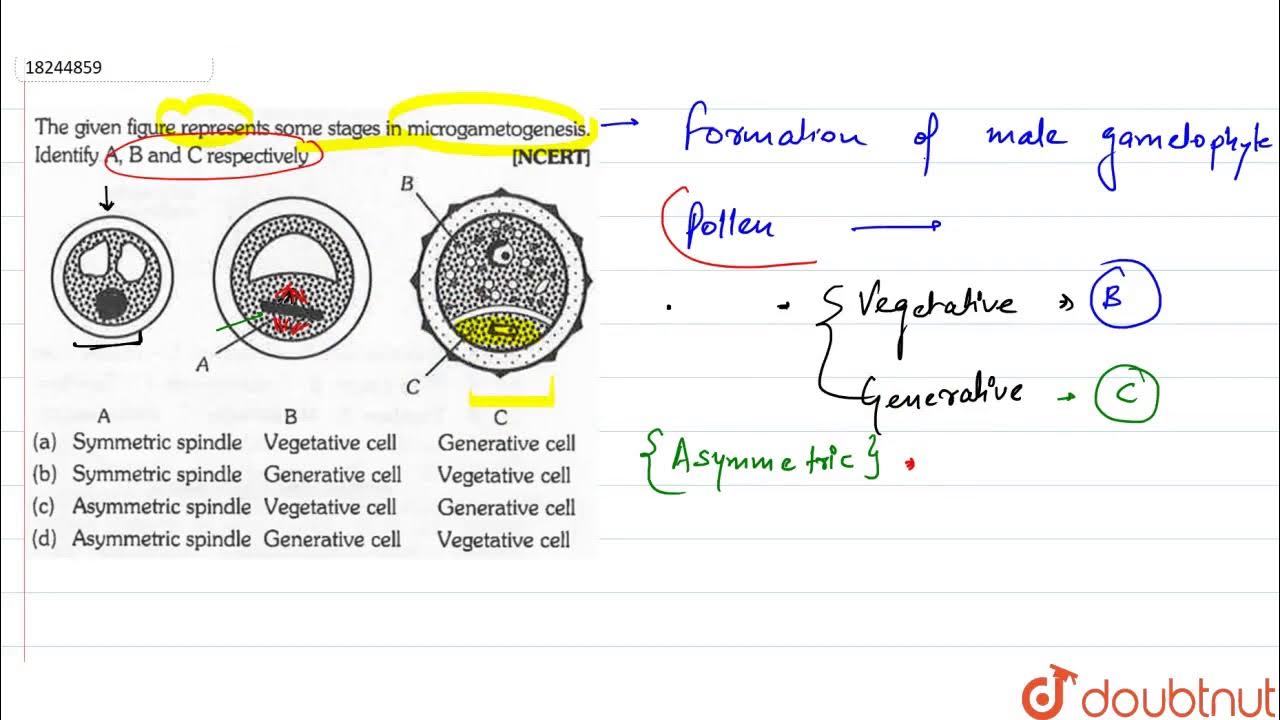 18244859
The given figure represents some stages in microgametogenesis.
Identify A, B and C respectively [NCERT]
→ Formation of male gametophyte
Pollen →
Vegetative » B
Generative → C
{Asymmetric} »
B
A
C
A B C
(a) Symmetric spindle Vegetative cell Generative cell
(b) Symmetric spindle Generative cell Vegetative cell
(c) Asymmetric spindle Vegetative cell Generative cell
(d) Asymmetric spindle Generative cell Vegetative cell
doubtnut